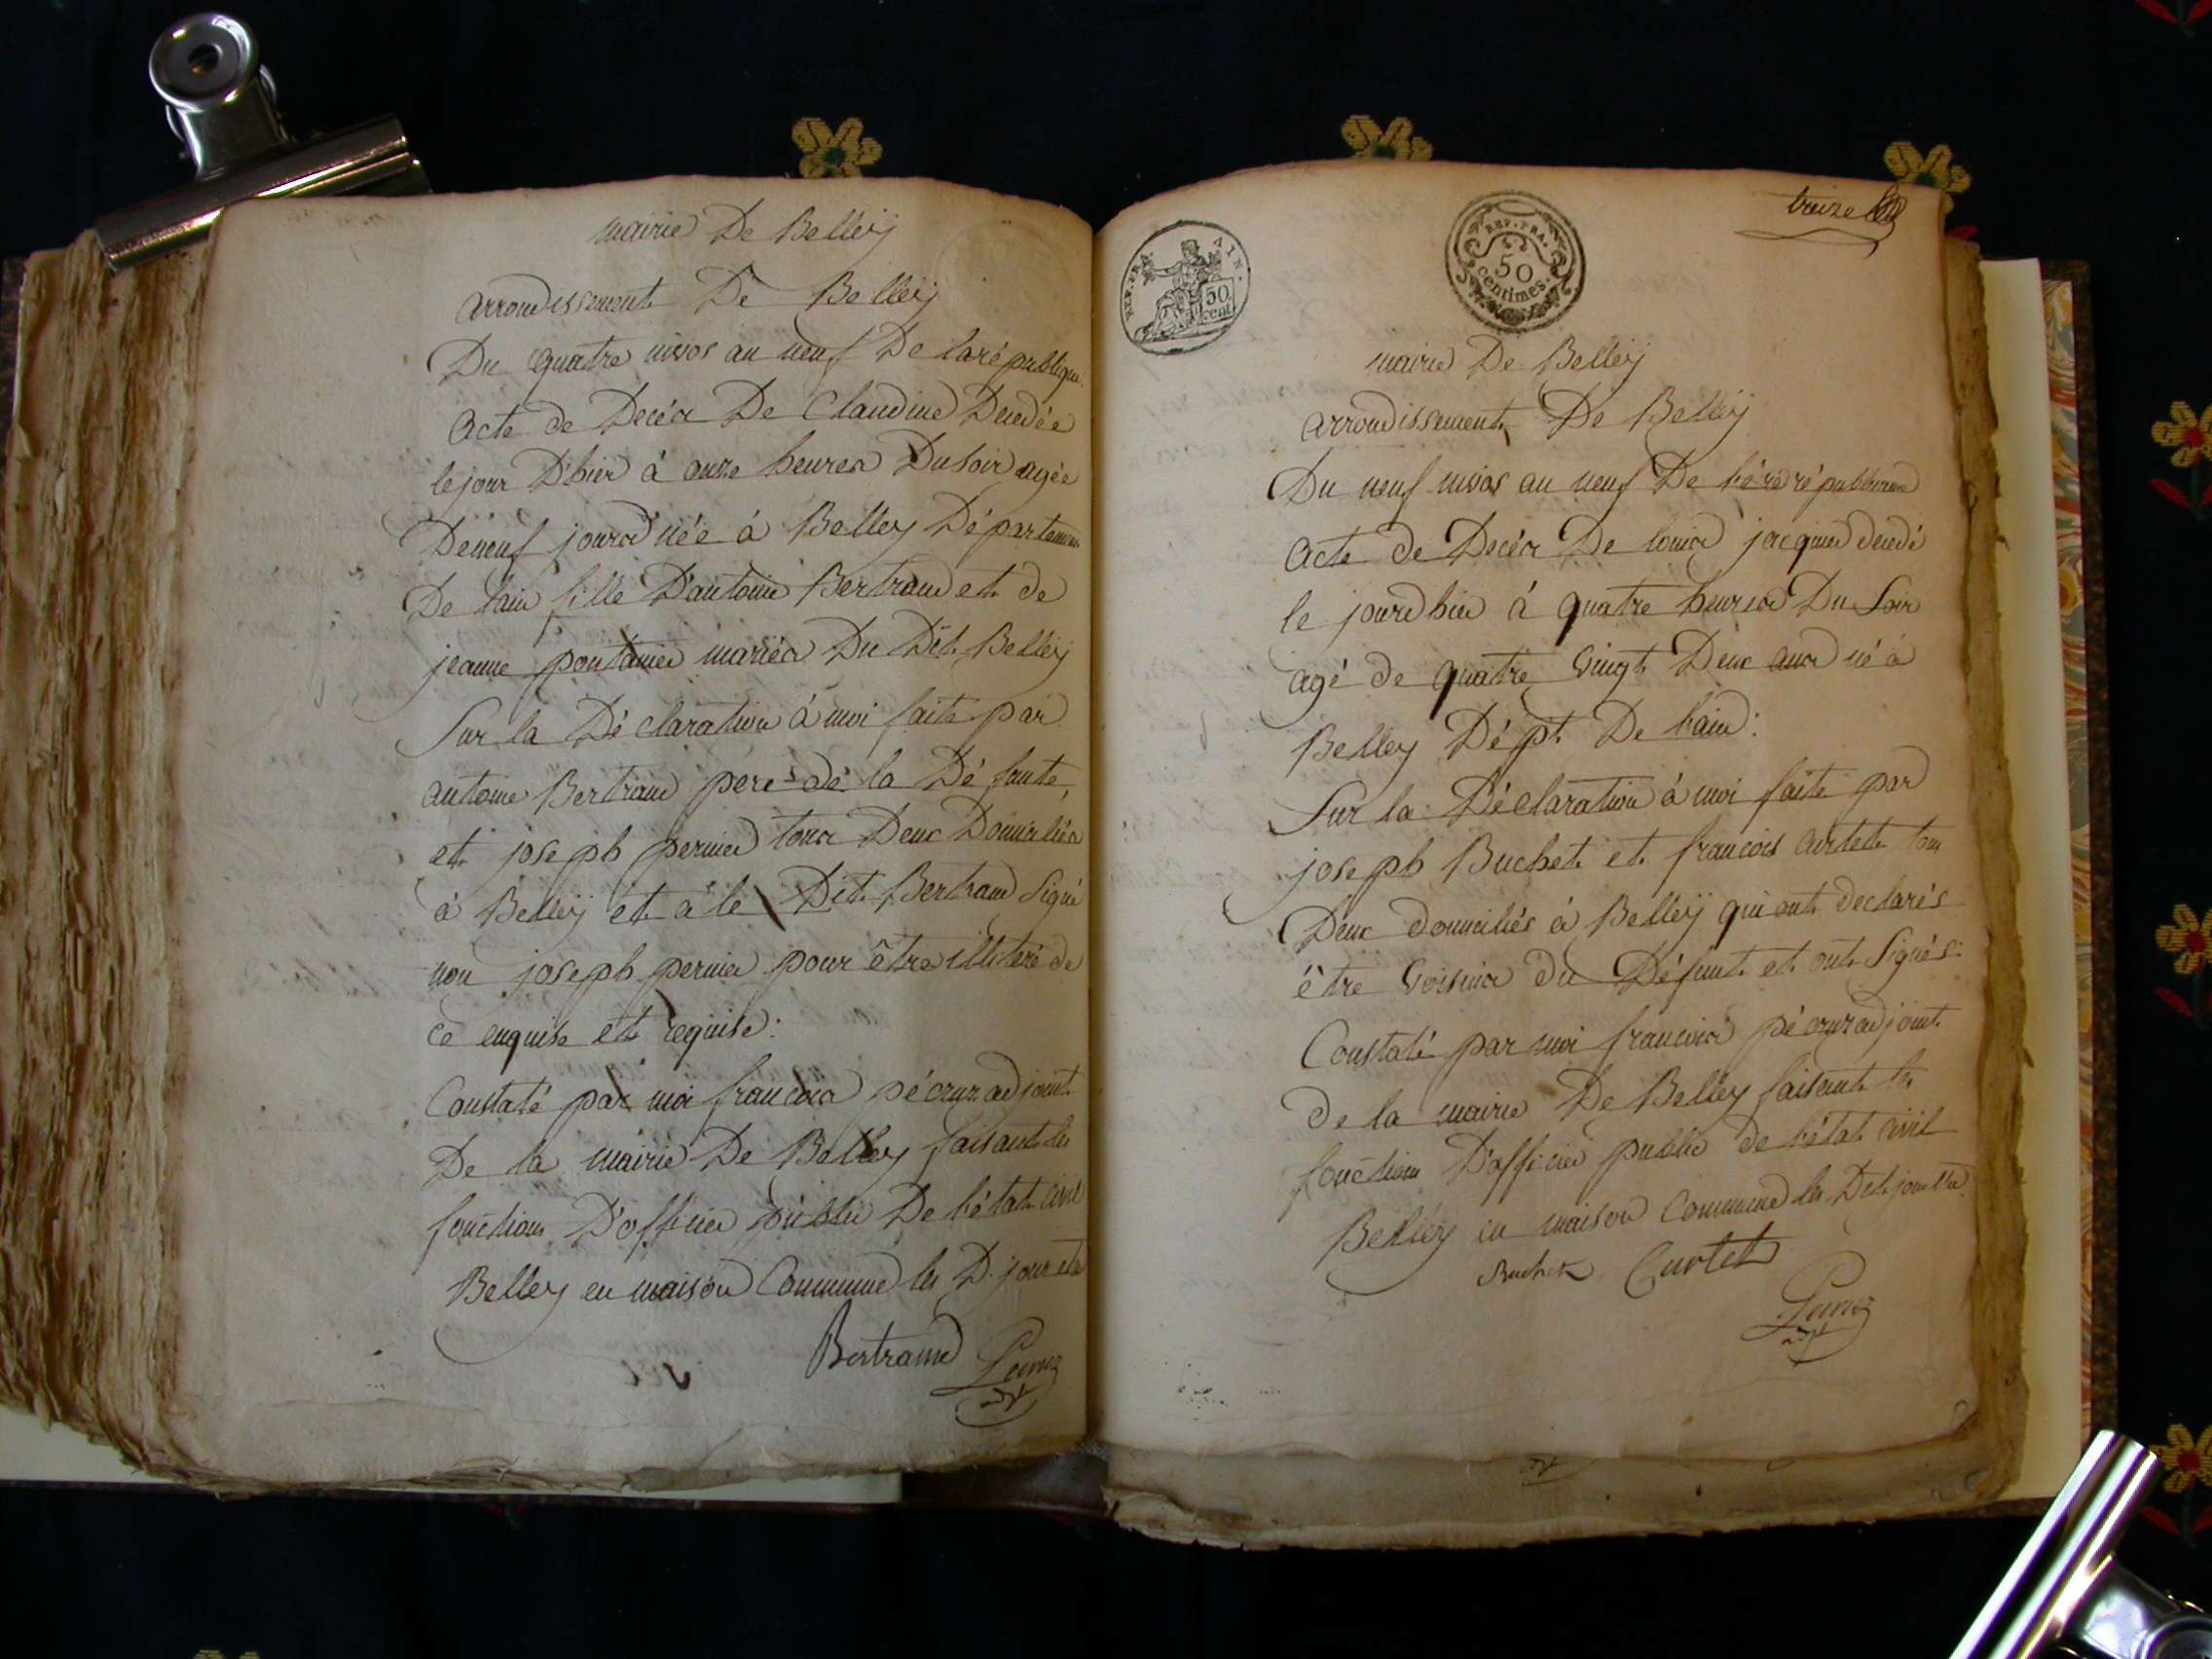 mairie De Belleÿ
arrondissement De Belleÿ
Du quatre nivos an neuf De la république
Acte de Decés De Claudine Decedée
le jour D'hier à onze heures Du soir agée
De neuf jours née à Belley Département
De lain fille D'antoine Bertrand et de
jeanne pontanier mariés Du Dit Belleÿ
Sur la Déclaration à moi faite par
antoine Bertrand pere de la Défunte,
et joseph pernier tous Deux Domiciliés
à Belleÿ et à le Dit Bertrand Signé
non joseph pernier pour être illiteré de
ce enquise et requise:
Constaté par moi francois pécruz adjoint
De la mairie De Belley faisant les
fonctions D'officier public De l'état civil
Belley en maison Commune les D. jour et a
Bertrand
REP. FRA.
AIN.
50
cent.
REP. FRA.
50
centimes.
treize
mairie De Belleÿ
arrondissement De Belleÿ
Du neuf nivos an neuf De l'ére républicaine
Acte de Decés De louis jacquier decedé
le jour d'hier à quatre heures Du Soir
agé de quatre Vingt Deux ans né à
Belley Dépt. De l'ain:
Sur la Déclaration à moi faite par
joseph Buchet et francois Curtet tous
Deux domiciliés à Belleÿ qui ont declarés
être Voisins du Défunt et ont Signés:
Constaté par moi francois pécruz adjoint
de la mairie De Belley faisant les
fonctions D'officier public de l'état civil
Belley en maison Commune les Dit jour
Buchet Curtet